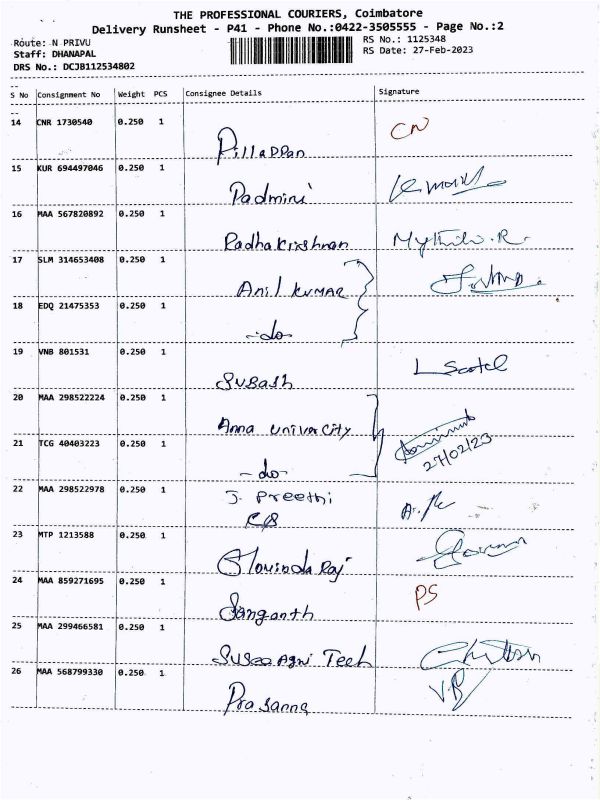 THE PROFESSIONAL COURIERS, Coimbatore
Delivery Runsheet - P41 - Phone No.:0422-3505555 - Page No.:2
Route: N PRIVU
RS No.: 1125348
Staff: DHANAPAL
RS Date: 27-Feb-2023
DRS No.: DCJB112534802
S No Consignment No Weight PCS Consignee Details Signature
14 CNR 1730540 0.250 1 CN
Pillappan
15 KUR 694497046 0.250 1
Padmini
16 MAA 567820892 0.250 1
Radhakrishnan Mythili.R.
17 SLM 314653408 0.250 1
Anil KUMAR
18 EDQ 21475353 0.250 1
-do-
19 VNB 801531 0.250 1
Subash
20 MAA 298522224 0.250 1
Anna Univercity
21 TCG 40403223 0.250 1 27/02/23
-do-
22 MAA 298522978 0.250 1 J. Preethi
23 MTP 1213588 0.250 1
Govinda Raj
24 MAA 859271695 0.250 1 PS
Sanganth
25 MAA 299466581 0.250 1
Agni Tech
26 MAA 568799330 0.250 1 VB
Prasanna